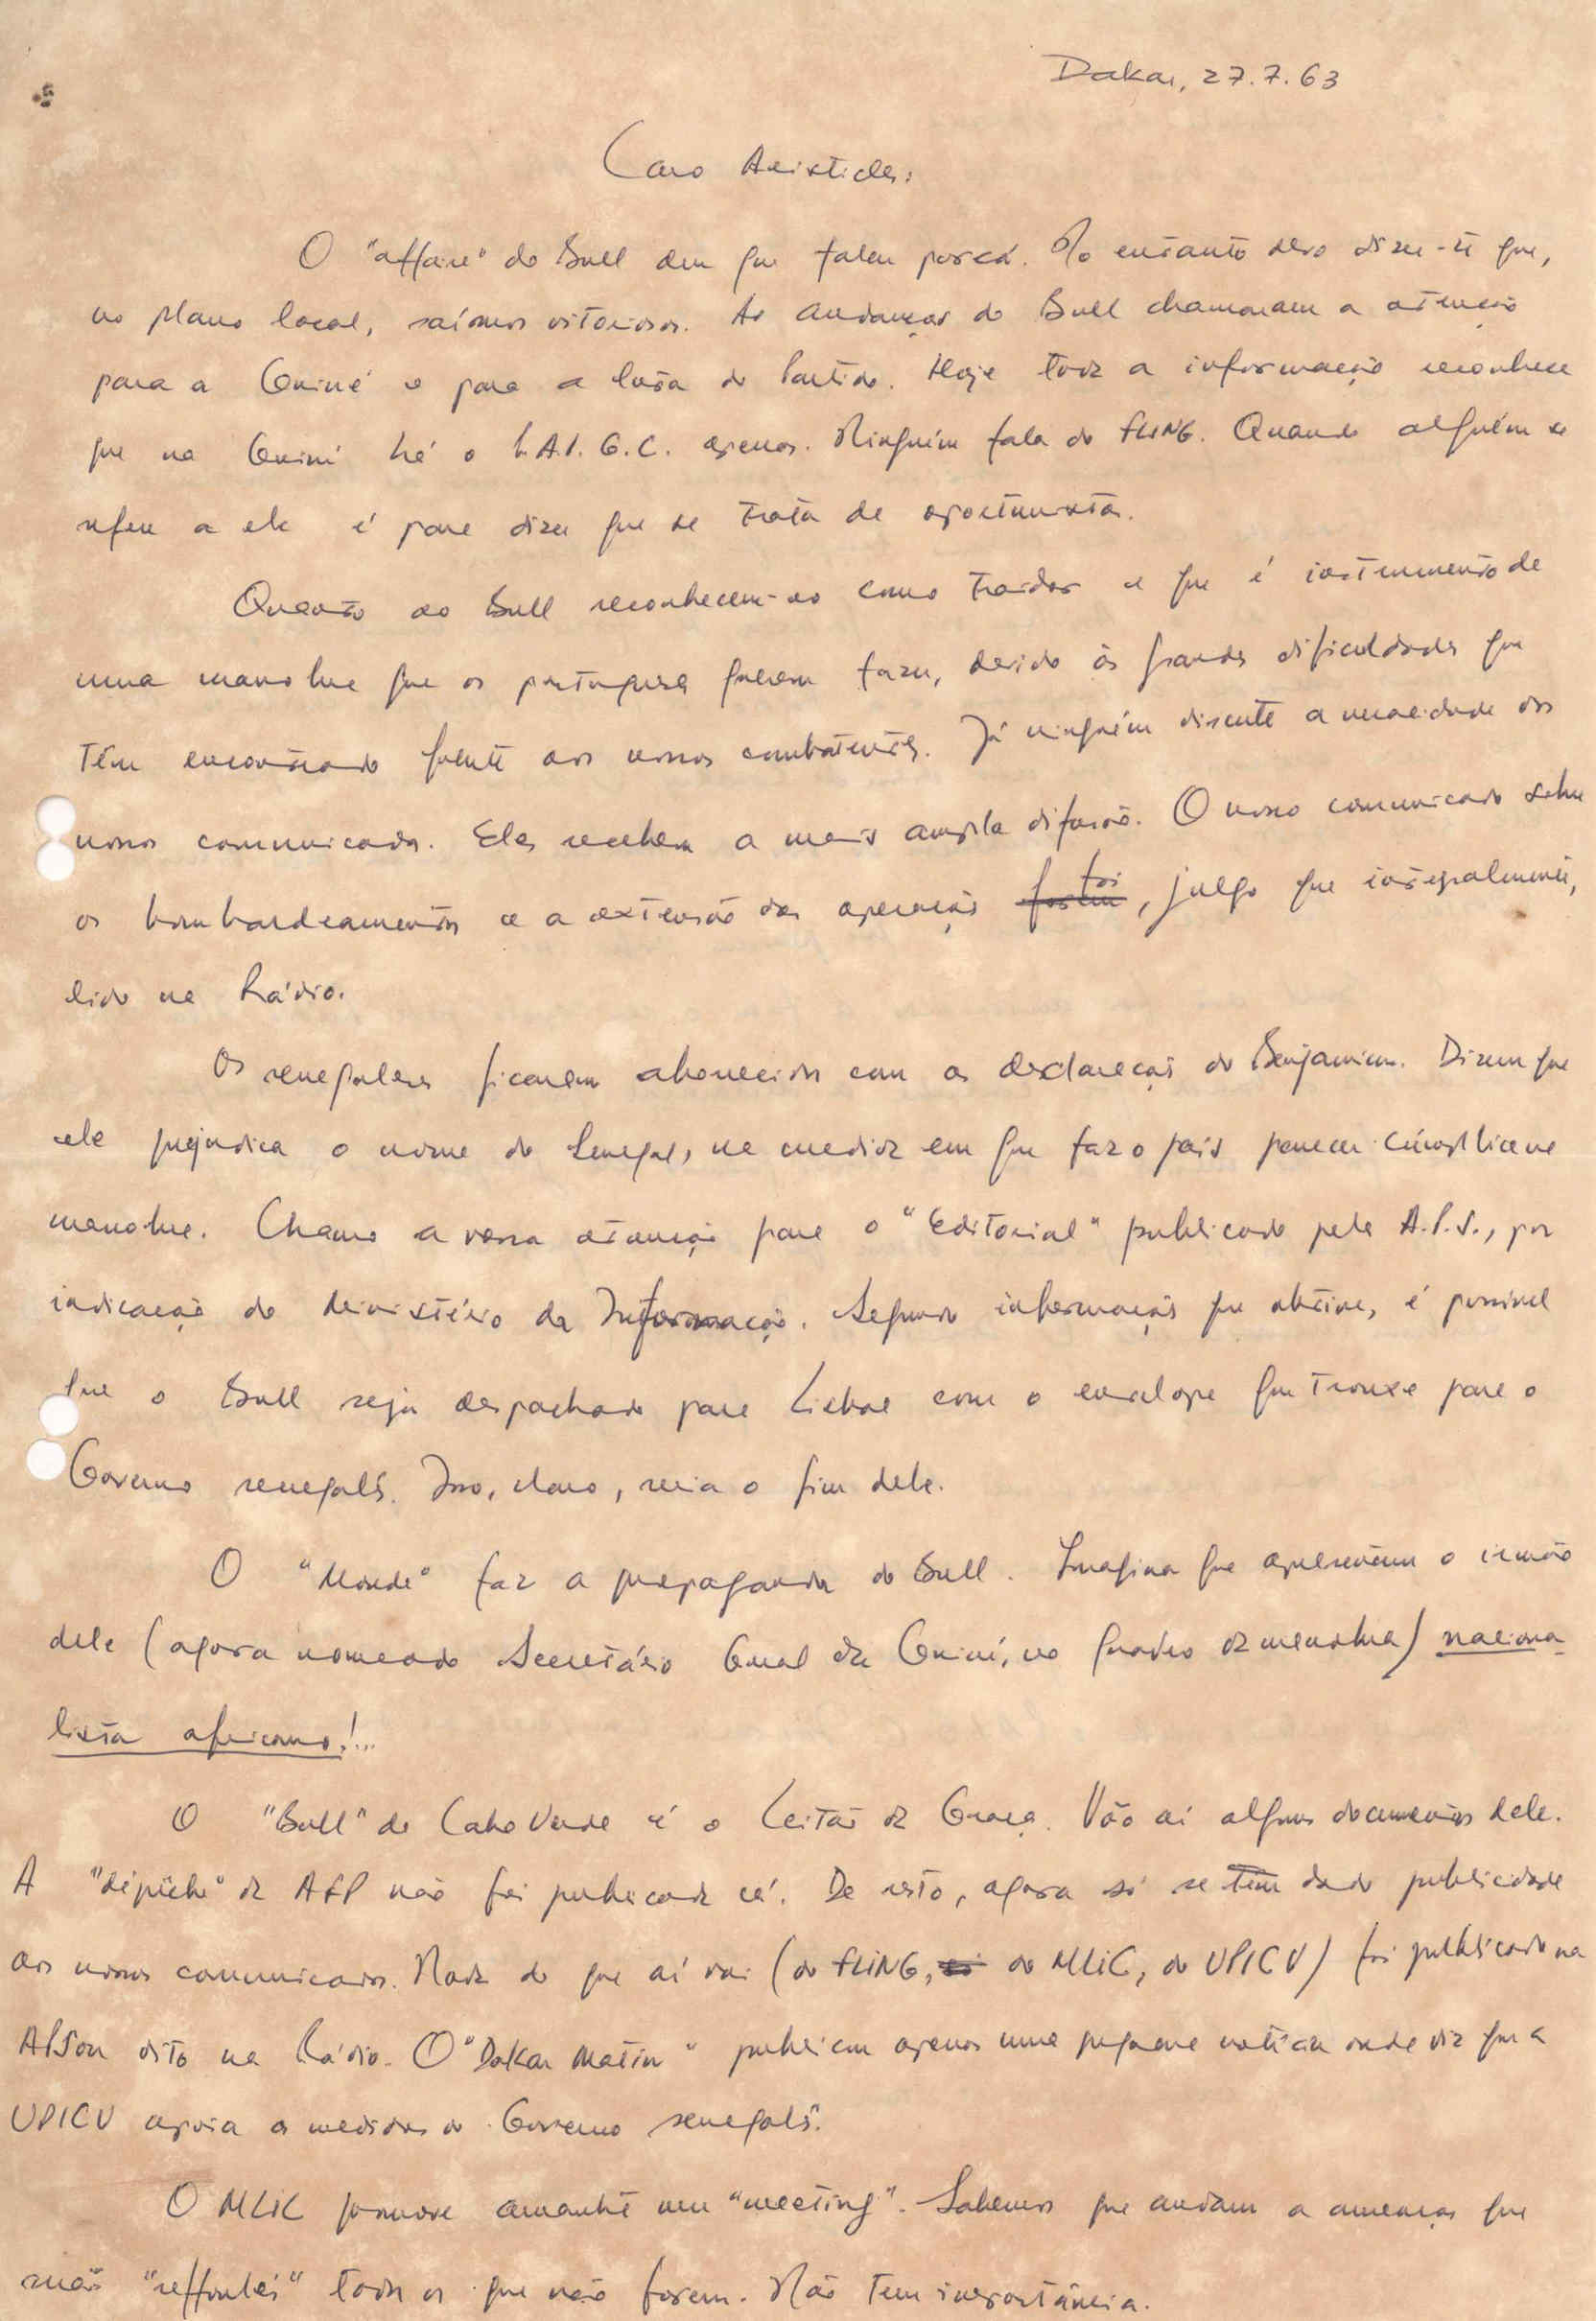 Dakar, 27.7.63
Caro Aristides:
O "affaire" do Bull deu que falar por cá. No entanto devo dizer-te que,
no plano local, saímos vitoriosos. As andanças do Bull chamaram a atenção
para a Guiné e para a luta do Partido. Hoje toda a informação reconhece
que na Guiné há o P.A.I.G.C. apenas. Ninguém fala do FLING. Quando alguém se
refere a ele é para dizer que se trata de oportunistas.
Quanto ao Bull reconhecem-no como traidor e que é instrumento de
uma manobra que os portugueses querem fazer, devido às grandes dificuldades que
têm encontrado frente aos nossos combatentes. Já ninguém discute a veracidade dos
nossos comunicados. Eles recebem a mais ampla difusão. O nosso comunicado sobre
os bombardeamentos e a extensão das operações foi, julgo que integralmente,
lido na Rádio.
Os senegaleses ficaram aborrecidos com as declarações do Benjamim. Dizem que
ele prejudica o nome do Senegal, na medida em que faz o país parecer cúmplice na
manobra. Chamo a vossa atenção para o "Editorial" publicado pela A.P.S., por
indicação do Ministério da Informação. Segundo informações que obtive, é possível
que o Bull seja despachado para Lisboa com o envelope que trouxe para o
Governo senegalês. Isso, claro, seria o fim dele.
O "Monde" faz a propaganda do Bull. Imagina que apresentam o irmão
dele (agora nomeado Secretário Geral da Guiné, no quadro da manobra) naciona-
lista africano!...
O "Bull" de Cabo Verde é o Leitão da Graça. Vão aí alguns documentos dele.
A "dépêche" da AFP não foi publicada cá. De resto, agora só se tem dado publicidade
aos nossos comunicados. Nada do que aí vai (do FLING, do MLIC, da UPICV) foi publicado na
APS ou dito na Rádio. O "Dakar Matin" publicou apenas uma pequena notícia onde diz que a
UPICV apoia as medidas do Governo senegalês.
O MLIC promove amanhã um "meeting". Sabemos que andam a ameaçar que
serão "refoulés" todos os que não forem. Não tem importância.